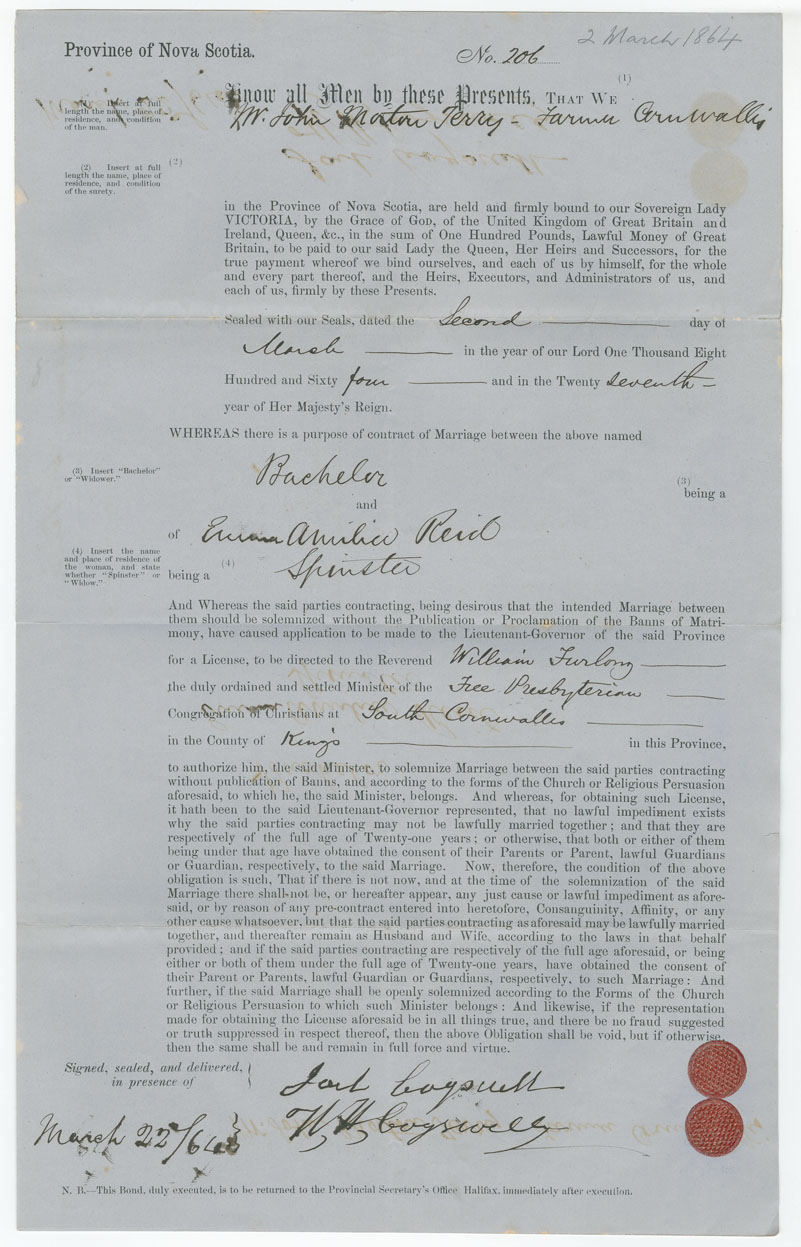 2 March 1864
Province of Nova Scotia.
No. 206
Know all Men by these Presents, THAT WE (1)
(1) Insert at full
length the name, place of
residence, and condition
of the man.
W. John Morton Terry - Farmer Cornwallis
(2) Insert at full
length the name, place of
residence, and condition
of the surety.
(2)
in the Province of Nova Scotia, are held and firmly bound to our Sovereign Lady
VICTORIA, by the Grace of GOD, of the United Kingdom of Great Britain and
Ireland, Queen, &c., in the sum of One Hundred Pounds, Lawful Money of Great
Britain, to be paid to our said Lady the Queen, Her Heirs and Successors, for the
true payment whereof we bind ourselves, and each of us by himself, for the whole
and every part thereof, and the Heirs, Executors, and Administrators of us, and
each of us, firmly by these Presents.
Sealed with our Seals, dated the Second day of
March in the year of our Lord One Thousand Eight
Hundred and Sixty four and in the Twenty seventh -
year of Her Majesty's Reign.
WHEREAS there is a purpose of contract of Marriage between the above named
(3) Insert "Bachelor"
or "Widower."
Bachelor (3)
being a
and
of Emma Amilia Reid
(4) Insert the name
and place of residence of
the woman, and state
whether "Spinster" or
"Widow."
being a (4) Spinster
And Whereas the said parties contracting, being desirous that the intended Marriage between
them should be solemnized without the Publication or Proclamation of the Banns of Matri-
mony, have caused application to be made to the Lieutenant-Governor of the said Province
for a License, to be directed to the Reverend William Furlong
the duly ordained and settled Minister of the Free Presbyterian
Congregation of Christians at South Cornwallis
in the County of King's in this Province,
to authorize him, the said Minister, to solemnize Marriage between the said parties contracting
without publication of Banns, and according to the forms of the Church or Religious Persuasion
aforesaid, to which he, the said Minister, belongs. And whereas, for obtaining such License,
it hath been to the said Lieutenant-Governor represented, that no lawful impediment exists
why the said parties contracting may not be lawfully married together; and that they are
respectively of the full age of Twenty-one years; or otherwise, that both or either of them
being under that age have obtained the consent of their Parents or Parent, lawful Guardians
or Guardian, respectively, to the said Marriage. Now, therefore, the condition of the above
obligation is such, That if there is not now, and at the time of the solemnization of the said
Marriage there shall not be, or hereafter appear, any just cause or lawful impediment as afore-
said, or by reason of any pre-contract entered into heretofore, Consanguinity, Affinity, or any
other cause whatsoever, but that the said parties contracting as aforesaid may be lawfully married
together, and thereafter remain as Husband and Wife, according to the laws in that behalf
provided; and if the said parties contracting are respectively of the full age aforesaid, or being
either or both of them under the full age of Twenty-one years, have obtained the consent of
their Parent or Parents, lawful Guardian or Guardians, respectively, to such Marriage: And
further, if the said Marriage shall be openly solemnized according to the Forms of the Church
or Religious Persuasion to which such Minister belongs: And likewise, if the representation
made for obtaining the License aforesaid be in all things true, and there be no fraud suggested
or truth suppressed in respect thereof, then the above Obligation shall be void, but if otherwise,
then the same shall be and remain in full force and virtue.
Signed, sealed, and delivered,
in presence of
Cogswell
March 22/64 W, H, Cogswell
N. B.—This Bond, duly executed, is to be returned to the Provincial Secretary's Office Halifax, immediately after execution.